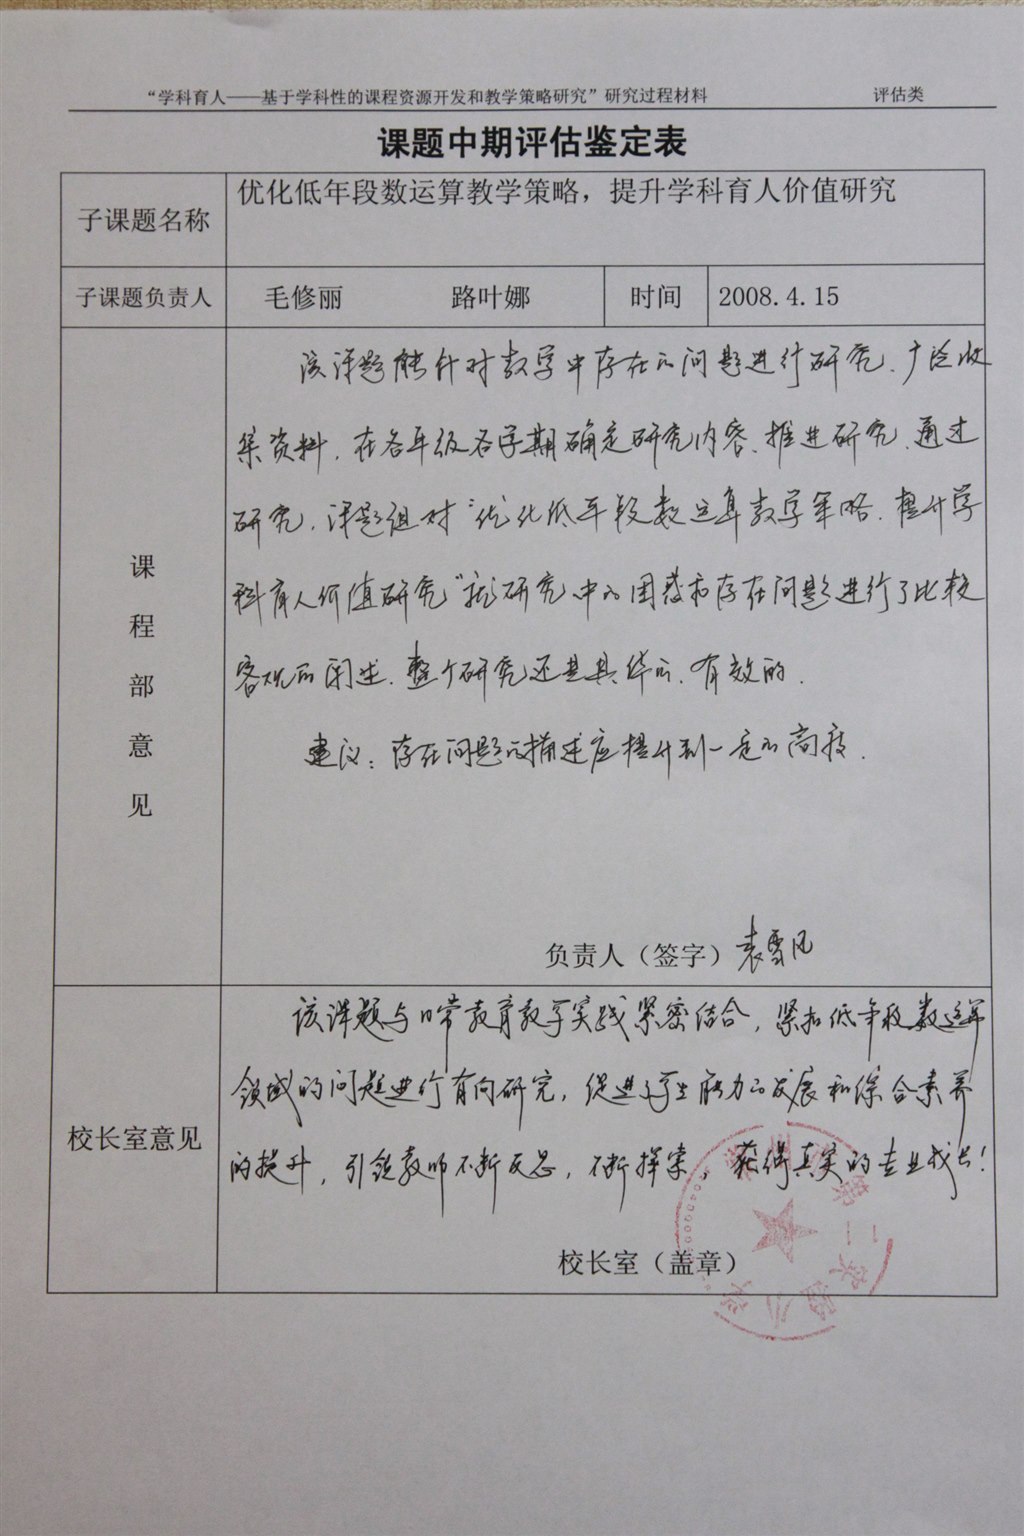 “学科育人——基于学科性的课程资源开发和教学策略研究”研究过程材料 评估类
课题中期评估鉴定表
子课题名称 优化低年段数运算教学策略，提升学科育人价值研究
子课题负责人 毛修丽 路叶娜 时间 2008.4.15
课程部意见
该课题能针对教学中存在的问题进行研究、广泛收
集资料，在各年级各学期确定研究内容、推进研究、通过
研究，课题组对“优化低年段数运算教学策略、提升学
科育人价值研究”就研究中的困惑和存在问题进行了比较
客观的阐述、整个研究还是具体的、有效的.
建议：存在问题的描述应提升到一定的高度.
负责人（签字）袁雪凤
校长室意见
该课题与日常教育教学实践紧密结合，紧扣低年段数运算
领域的问题进行有向研究，促进了学生能力的发展和综合素养
的提升，引领教师不断反思，不断探索，获得真实的专业成长！
校长室（盖章）